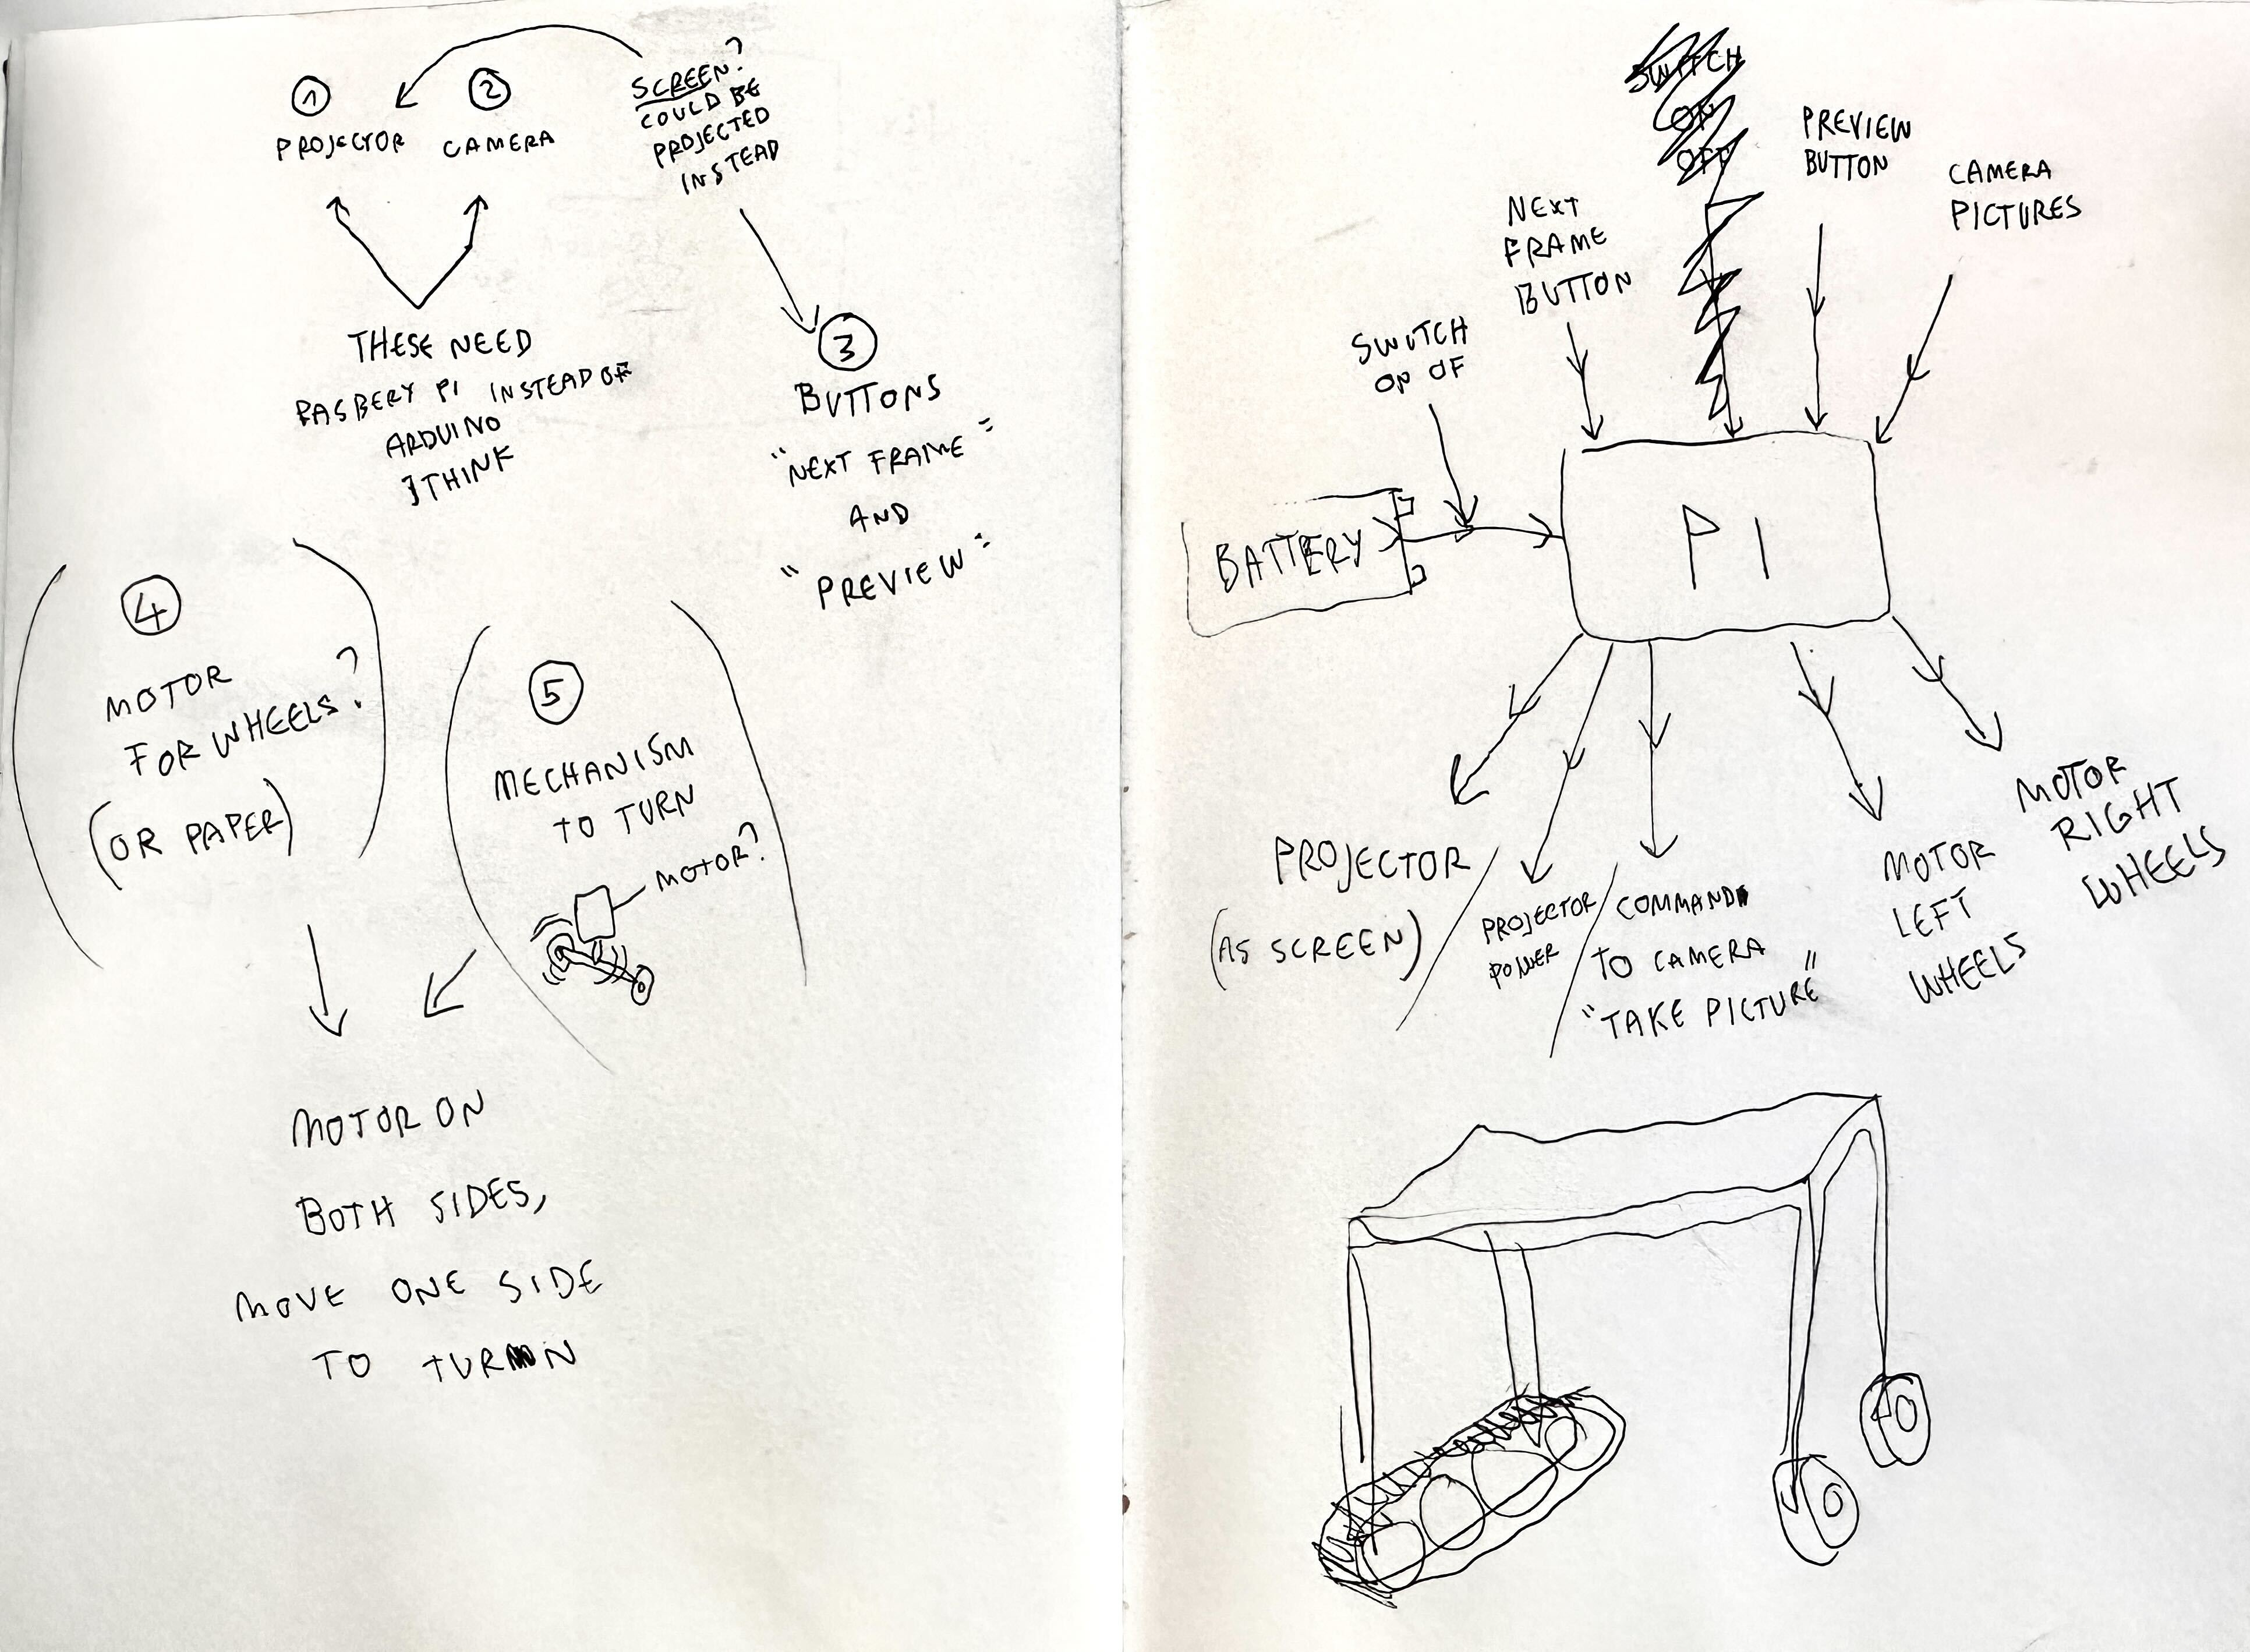 1
PROJECTOR
2
CAMERA
SCREEN?
COULD BE
PROJECTED
INSTEAD
THESE NEED
RASBERY PI INSTEAD OF
ARDUINO
I THINK
3
BUTTONS
"NEXT FRAME"
AND
"PREVIEW"
4
MOTOR
FOR WHEELS?
(OR PAPER)
5
MECHANISM
TO TURN
MOTOR?
MOTOR ON
BOTH SIDES,
MOVE ONE SIDE
TO TURN
SWITCH
ON
OFF
PREVIEW
BUTTON
CAMERA
PICTURES
NEXT
FRAME
BUTTON
SWITCH
ON OF
BATTERY
PI
PROJECTOR
(AS SCREEN)
PROJECTOR
POWER
COMMAND
TO CAMERA
"TAKE PICTURE"
MOTOR
LEFT
WHEELS
MOTOR
RIGHT
WHEELS